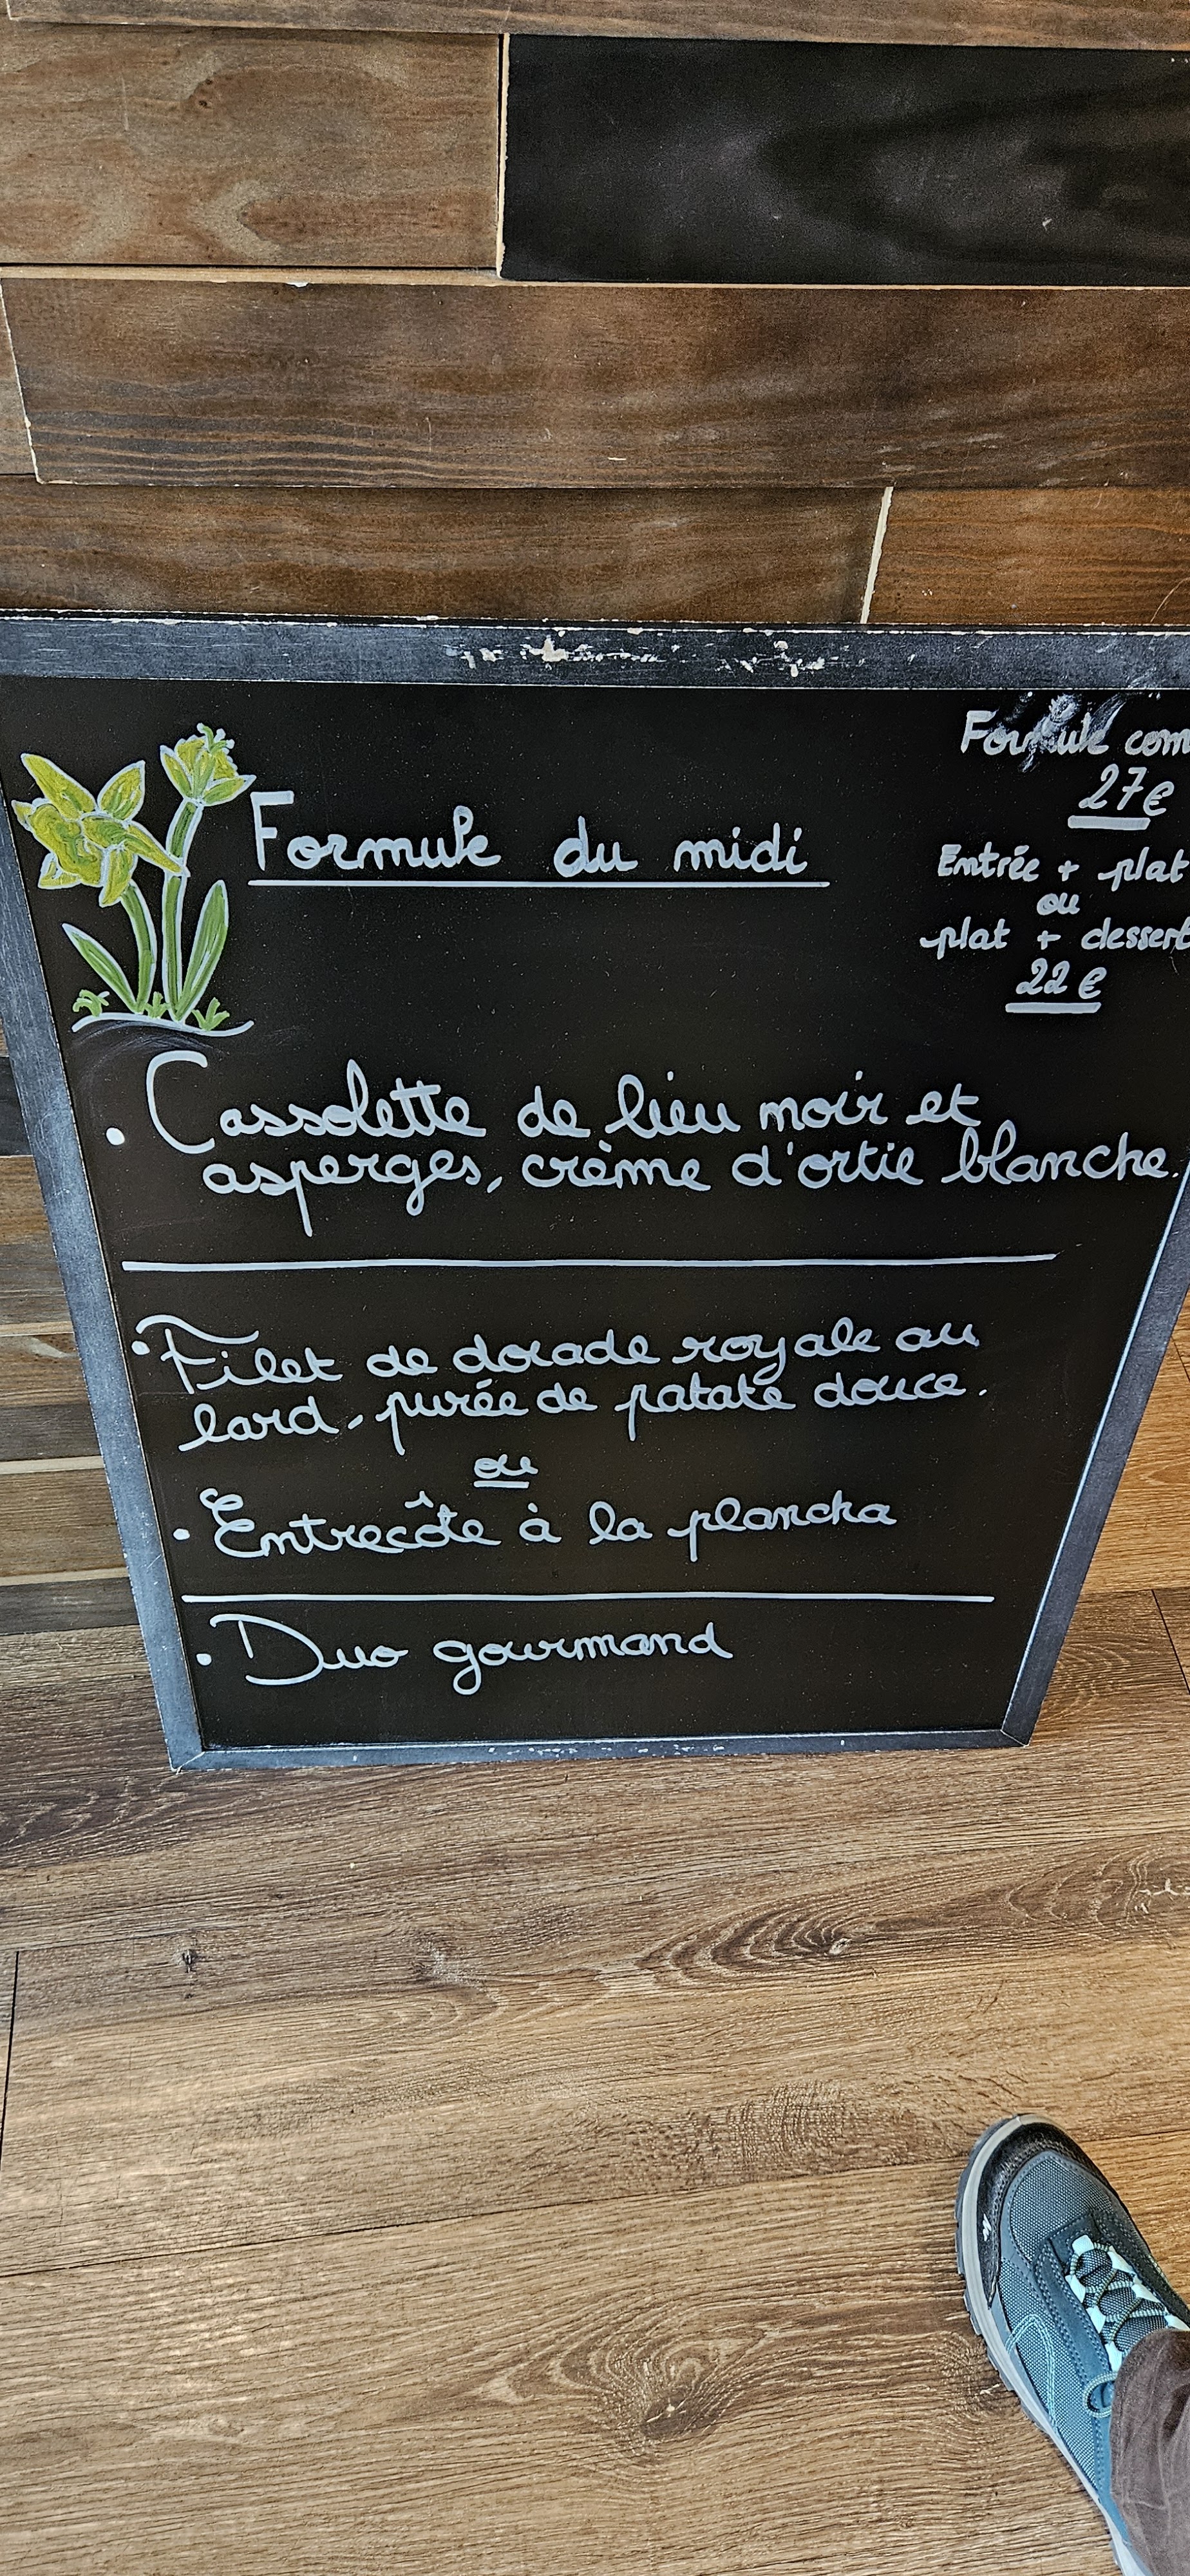 Formule com
27€
Entrée + plat
ou
plat + dessert
22 €
Formule du midi
• Cassolette de lieu noir et
asperges, crème d'ortie blanche.
• Filet de dorade royale au
lard, purée de patate douce.
ou
• Entrecôte à la plancha
• Duo gourmand